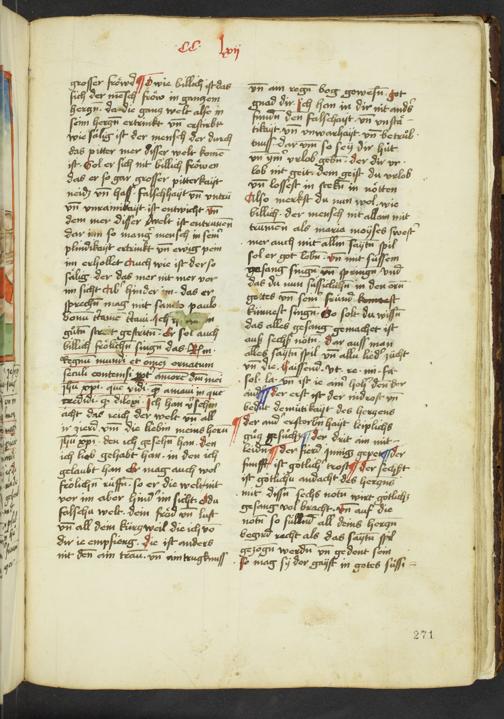 CC lxvij
grosser fröwd O wie billich ist das
sich der mensch fröw in gantzem
hertzn. da die gantz welt also in
sem hertzn ertrinkt vn̄ erstirbt
wie sälig ist der mensch der durch
das pitter mer diser welt kome
ist. Sol er sich nit billich fröwen
das er so gar grosser pitterkaÿt
neid vn̄ hass falschhaÿt vn̄ vntrü
vn̄ vnraínikaÿt ist entwicht vn̄
dem mer disser welt ist entrunnen
dar inn so mang mensch in sem
plindikaÿt ertrinkt vn̄ ewig pein
im erhollet Auch wie ist der so
sälig der das mer nit mer vor
im sicht hinder im. das er
sprechn mag mit sancto paulo
gůtn streit gestrittn. Er sol auch
billich frölichn singn das
Regnu mundi et omez ornatum
seculi contensi ppt amorem dni mei
jhu xpi. que vidi q̄ amaui in que
credidi. q̄ dilexi. Ich han
acht das reich der welt vn̄ all
ir zierd vm̄ die liebin meins hern
jhu xpi. den ich gesehn han. den
ich lieb gehabt han. in den ich
gelaubt han Er mag auch wol
frölichn rüffn. so er die welt nit
vor im aber hind im sicht O du
falsche welt. dein fröd vn̄ lust
vn̄ all dem kurtzweil die ich vo
dir ie empfieng. Die ist anders
nit den ain trau. vn̄ ain trugknuss
vn̄ am regn bog gewesn got
gnad dir Ich han in dir nit ands
fundn den falschaÿt. vn̄ vnstä
tikaÿt vn̄ vnwarhaÿt vn̄ betrüb
nuss. dar vm so seÿ dir hüt
vn̄ ÿm vrlob gebn. der dir vr
lob nit geit dem geist du vrlob
vn̄ lossest in stekn in nöttn
Also merkst du nun wol. wie
billich. der mensch mit allein mit
truinen als maria moÿses swest
mer auch mit alln saÿtn spil
sol er got lobn. vn̄ mit süssem
gesang singn vn̄ springn vnd
das du nun süssiclichn in den orn
gottes vn̄ sem fründ
künnest singn. So solt du wissn
das alles gesang gemachet ist
auss sechs notn. dar auss man
alles saÿtn spil vn̄ allu lied zücht
vn̄ die haissend. vt. re. mi. fa.
sol. la. vn̄ ist ie ain hohn den der
and der erst ist der nidrost vn̄
bedüt demütikaÿt des hertzens
der and erstorbn haÿt leiplichs
gesuchs der drit ain mit
leidn der fierd jnnigs gepet der
fünfft ist götlich trost der sechst
ist götlichu andacht des hertzns
mit disen sechs notn wirt götlichs
gesang vol bracht. vn̄ auf die
notn so süllnd all deins hertzn
begird racht als das saÿtn spil
getzogn werdn vn̄ gedent sem
so mag sÿ der gaÿst in gotes süssi
271